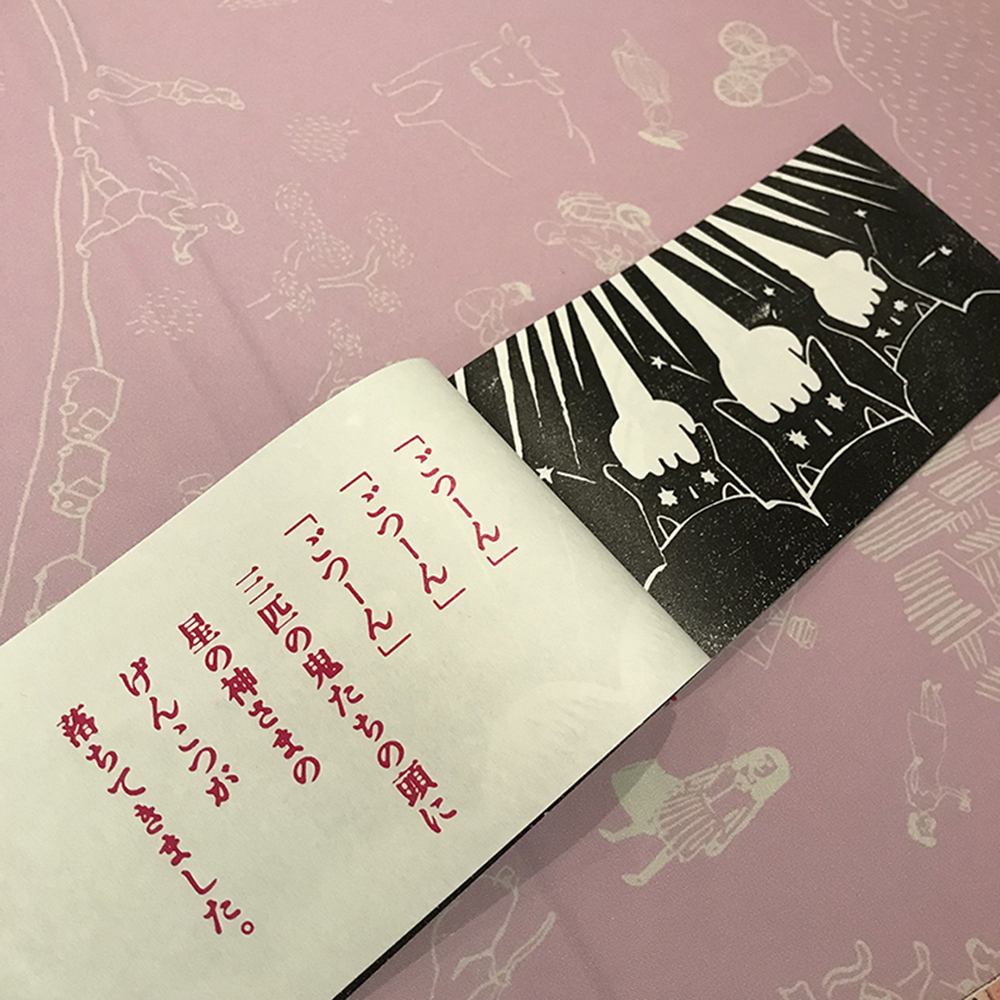 「ごつーん」
「ごつーん」
「ごつーん」
三匹の鬼たちの頭に
星の神さまの
げんこつが
落ちてきました。